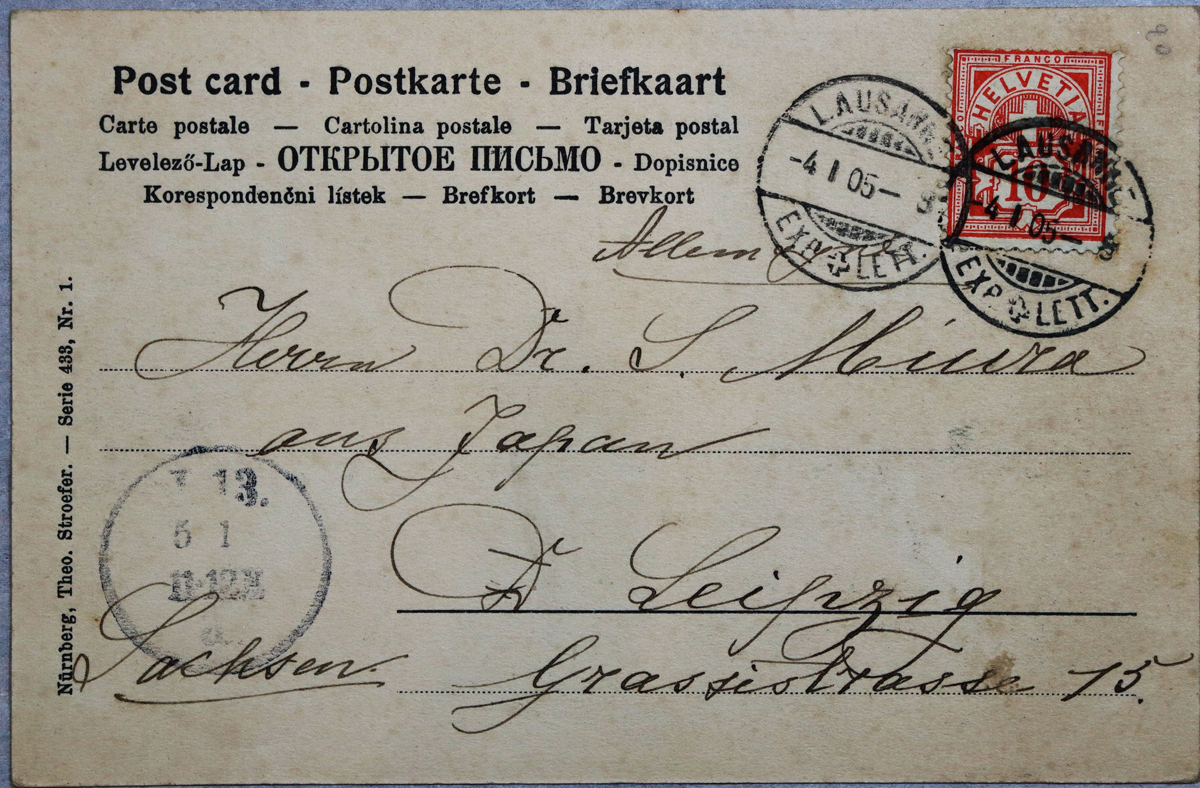 Post card - Postkarte - Briefkaart
Carte postale — Cartolina postale — Tarjeta postal
Levelező-Lap - ОТКРЫТОЕ ПИСЬМО - Dopisnice
Korespondenčni lístek — Brefkort — Brevkort
FRANCO
HELVETIA
10
LAUSANNE
-4 I 05-
EXP. LETT.
LAUSANNE
-4 I 05-
EXP. LETT.
Allemagne
Herrn Dr. S. Miura
aus Japan
Leipzig
Sachsen
Grassistrasse 15.
13.
5 1
Nürnberg, Theo. Stroefer. — Serie 433, Nr. 1.